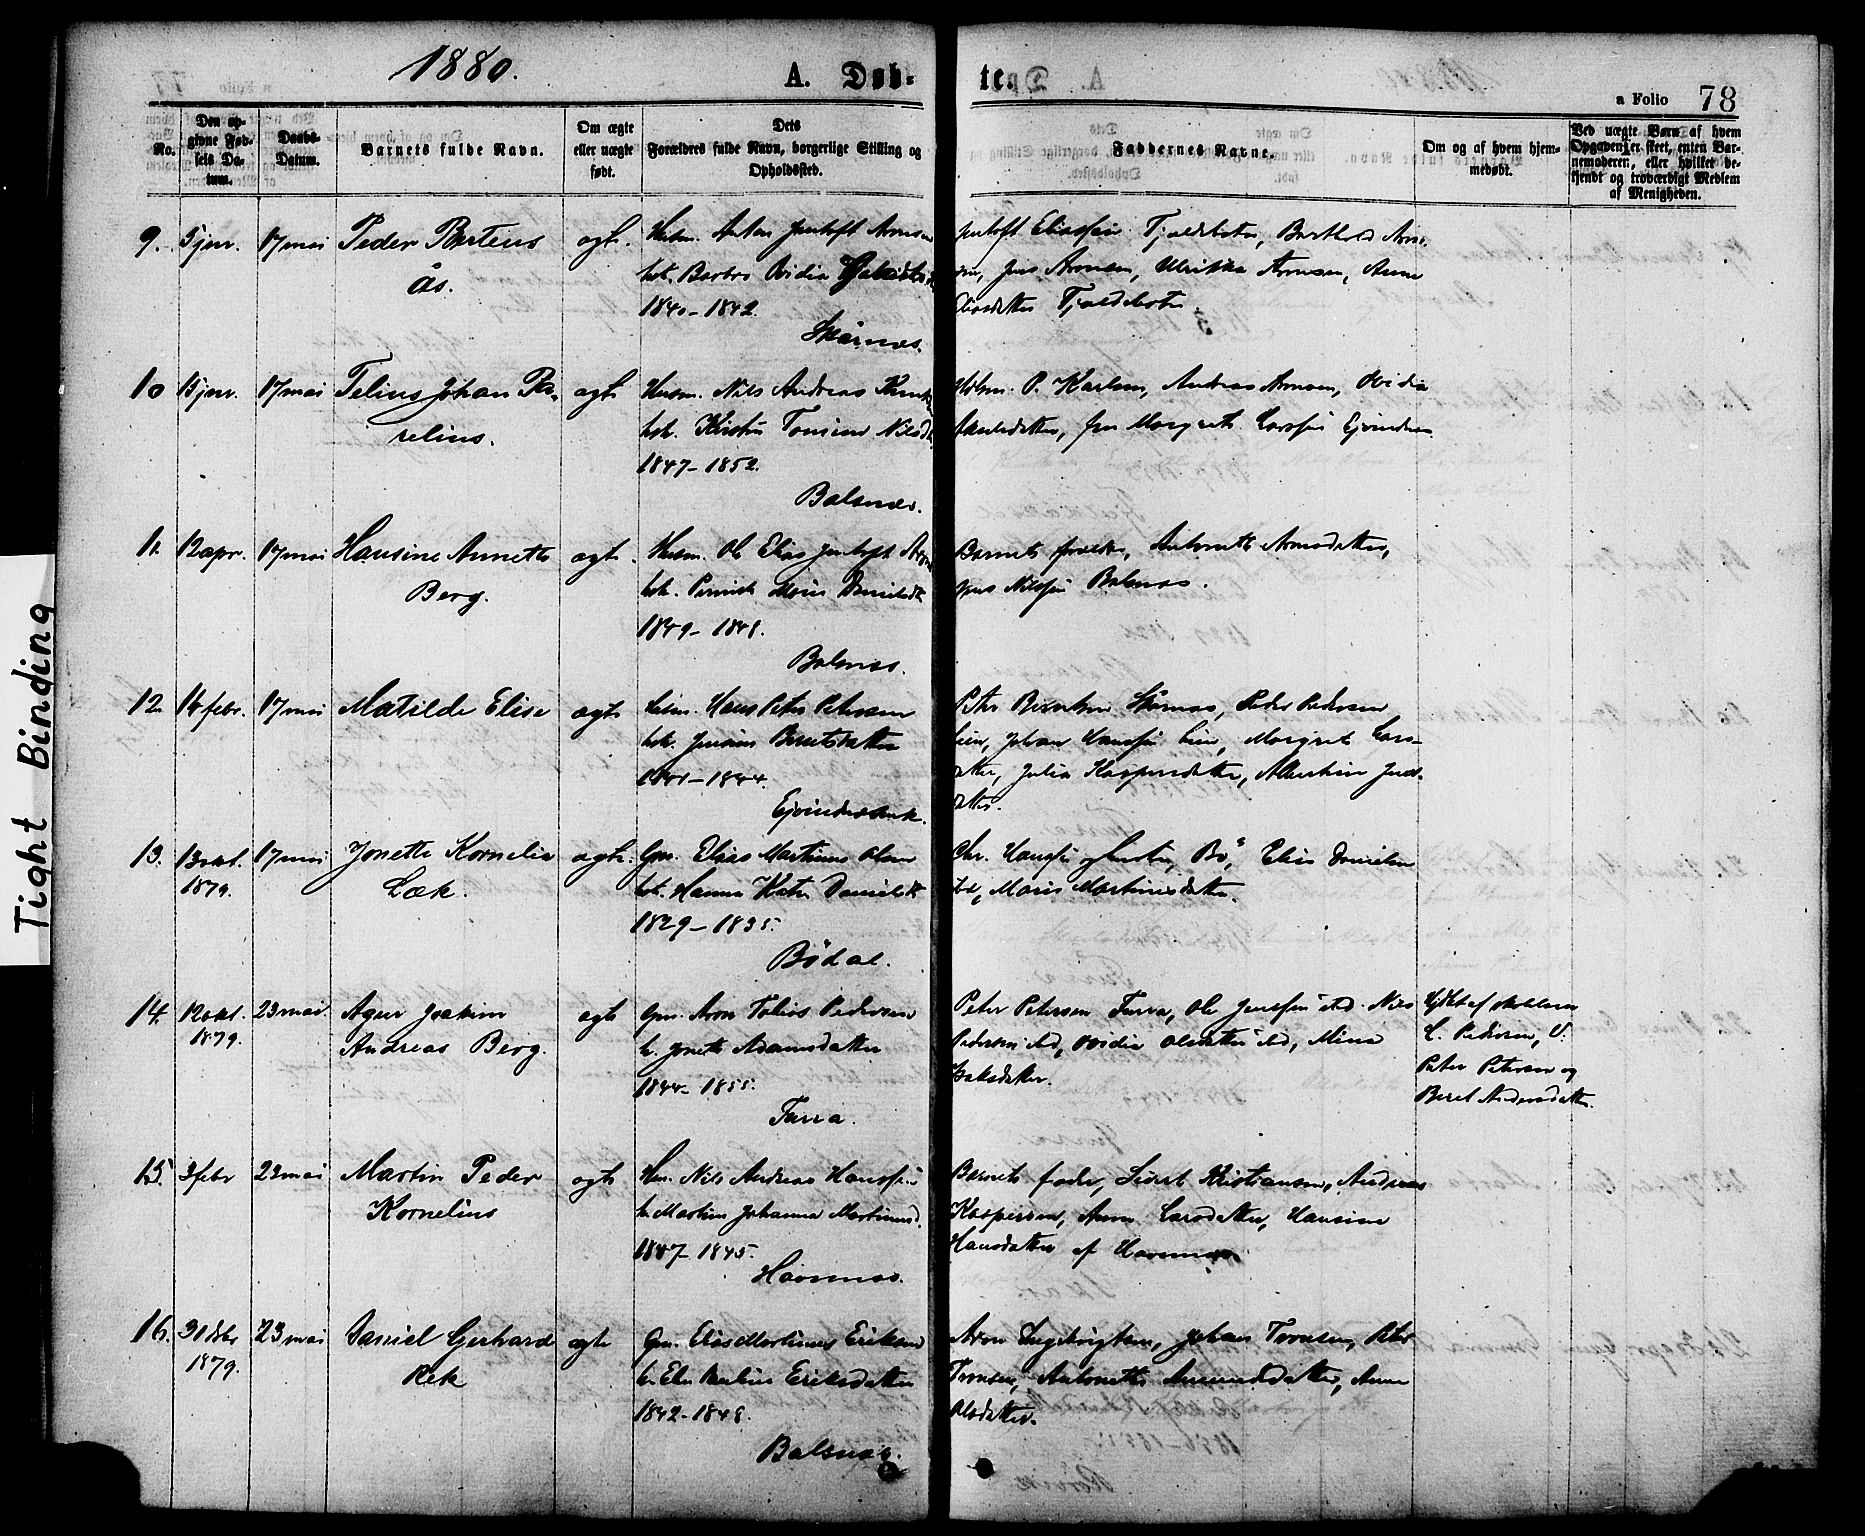 1880.
A. Døb-
te.
a Folio 78
No.
Den op-
givne Fød-
sels Da-
tum.
Daabs-
Datum.
Barnets fulde Navn.
Om ægte
eller uægte
født.
Dets
Forældres fulde Navn, borgerlige Stilling og
Opholdssted.
Faddernes Navne.
Om og af hvem hjem-
medøbt.
Ved uægte Børn af hvem
Opgaven er skeet, enten Bar-
nemoderen, eller hvilket be-
kjendt og troværdigt Medlem
af Menigheden.
9. 5 jnr. 17 mai Peder Berteus
Ås.
agt.
Husm. Anton Jentoft Arnsen
hst. Barbro Ovidia
1840-1842.
Skårnes.
Jentoft Eliassen Tjeldebotn, Berthold Arn-
sen, Jens Arnsen, Ulrikka Arnsen, Anne
Eliasdatter Tjeldebotn.
10 15 jnr. 17 mai Telius Johan Pe-
relius.
agt
Husm. Nils Andreas
hst. Kirstin Tomine Nilsd
1847-1852.
Balsnes.
Husm. P. Karlsen, Andreas Arnsen, Ovidia
Margrete Larssen
11. 12 apr. 17 mai Hansine Annette
Berg.
agt.
Husm. Ole Elias Jentoft
hst. Marie Danielsdt
1849-1848.
Balsnes.
Barnets forældre, Antonette Arnsdatter,
Jens Nilssen Balsnes.
12. 14 febr. 17 mai Matilde Elise
agt
Husm. Hans Peter Petersen
hst. Jensine Berntsdatter
1841-1844.
Peter Berntsen Skårnes, Peder Pedersen
Lien, Johan Hanssen Lien, Margrete Lars-
datter, Julia Kaspersdatter, Albertine
datter.
13. 13 okt.
1879.
17 mai Jonette Kornelia
Læk.
agt.
Gm. Elias Martinus Olsen
hst. Hanna Katr. Danielsdt
1829-1835.
Bødal.
Chr. Hanssen Bø, Elias Danielsen
ibd, Maria Martinusdatter.
14. 12 okt.
1879.
23 mai Agur Joakim
Andreas Berg.
agt
Gm. Aron Tobias Pedersen
h. Jonette Adamsdatter
1844-1855.
Furra.
Peter Petersen Furra, Ole Jenssen ibd. Nils
Pedersen ibd, Ovidia Olsdatter ibd, Mina
Isaksdatter.
Hjdbt af skolelærer
C. Pedersen, V.
Peter Petersen og
Beret Andersdatter.
15. 3 febr 23 mai Martin Peder
Kornelius
agt
Hm. Nils Andreas Hanssen
h. Martine Johanna Martinusd.
1847-1845.
Havnnes.
Barnets fader, Sivert Kristiansen, Andreas
Kaspersen, Anne Larsdatter, Hansine
Hansdatter af Havnnes
16. 31 dcbr
1879.
23 mai Daniel Gerhard
Rek
agt
Gm. Elias Martinus Eriksen
h. Eriksdatter
1842-1848.
Balsnes.
Aron Ingebrigtsen, Johan Tronsen, Peter
Tronsen, Antonette Amundsdatter, Anne
Olsdatter.
Tight Binding